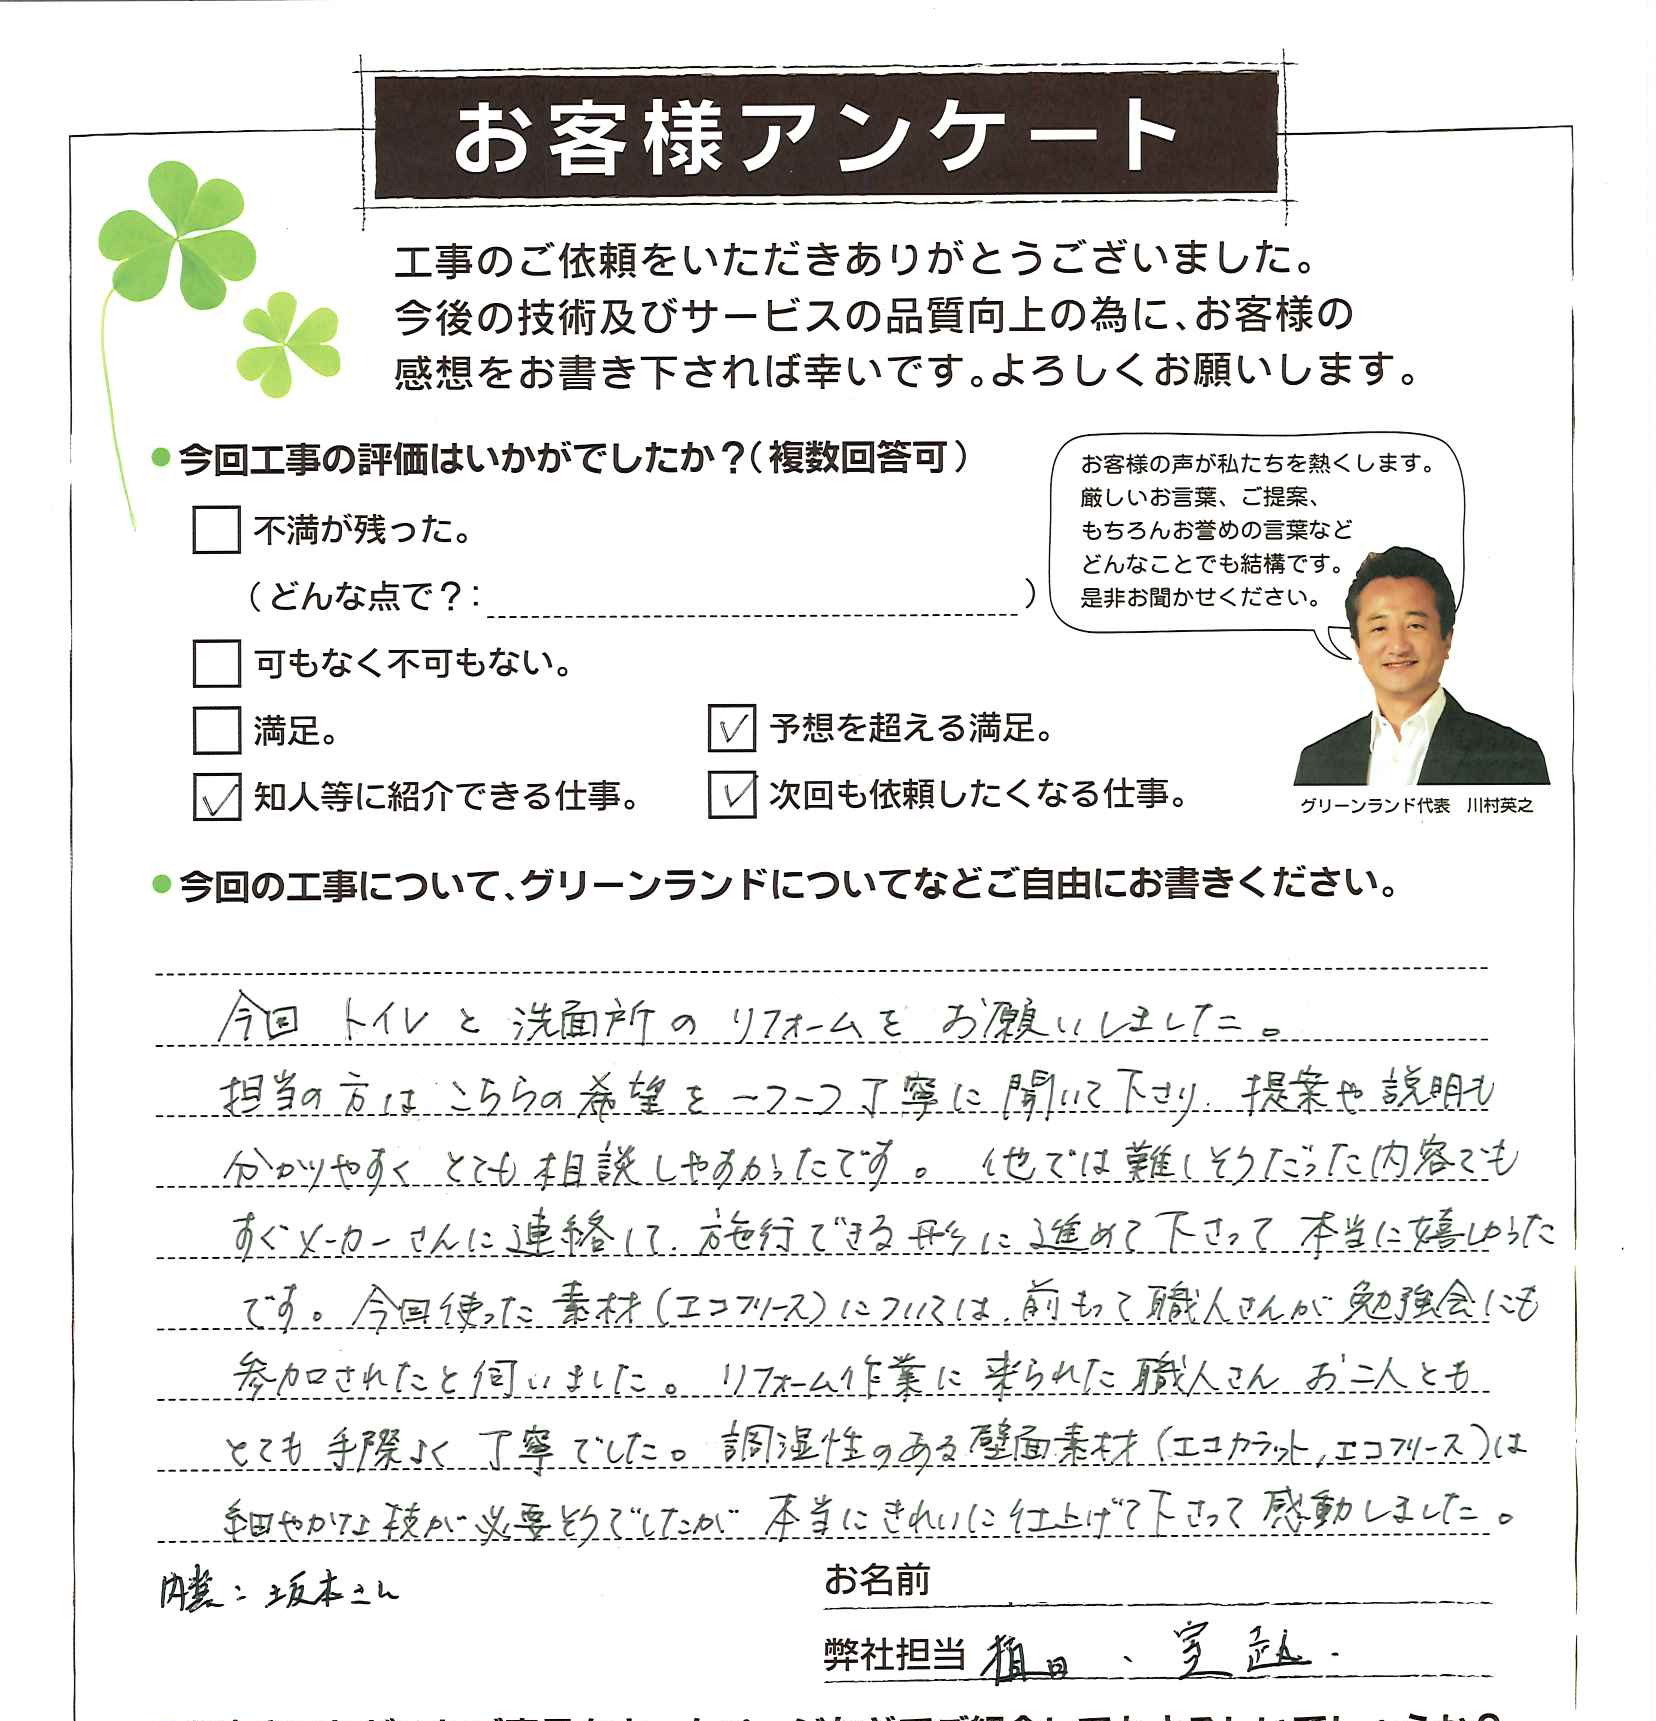 お客様アンケート
工事のご依頼をいただきありがとうございました。
今後の技術及びサービスの品質向上の為に、お客様の
感想をお書き下されば幸いです。よろしくお願いします。
●今回工事の評価はいかがでしたか？（複数回答可）
不満が残った。
（どんな点で？： ）
可もなく不可もない。
満足。
✓ 予想を超える満足。
✓ 知人等に紹介できる仕事。
✓ 次回も依頼したくなる仕事。
お客様の声が私たちを熱くします。
厳しいお言葉、ご提案、
もちろんお誉めの言葉など
どんなことでも結構です。
是非お聞かせください。
グリーンランド代表　川村英之
●今回の工事について、グリーンランドについてなどご自由にお書きください。
今回 トイレと洗面所のリフォームを お願いしました。
担当の方は こちらの希望を 一つ一つ丁寧に 聞いて下さり、提案や説明も
分かりやすく とても相談しやすかったです。他では難しそうだった内容でも
すぐメーカーさんに連絡して、施行できる形に進めて下さって 本当に嬉しかった
です。今回使った素材（エコフリース）については、前もって職人さんが勉強会にも
参加されたと伺いました。リフォーム作業に来られた職人さん お二人とも
とても手際よく 丁寧でした。調湿性のある壁面素材（エコカラット，エコフリース）は
細やかな技が必要そうでしたが 本当にきれいに仕上げて下さって感動しました。
内装：坂本さん
お名前
弊社担当 植田、